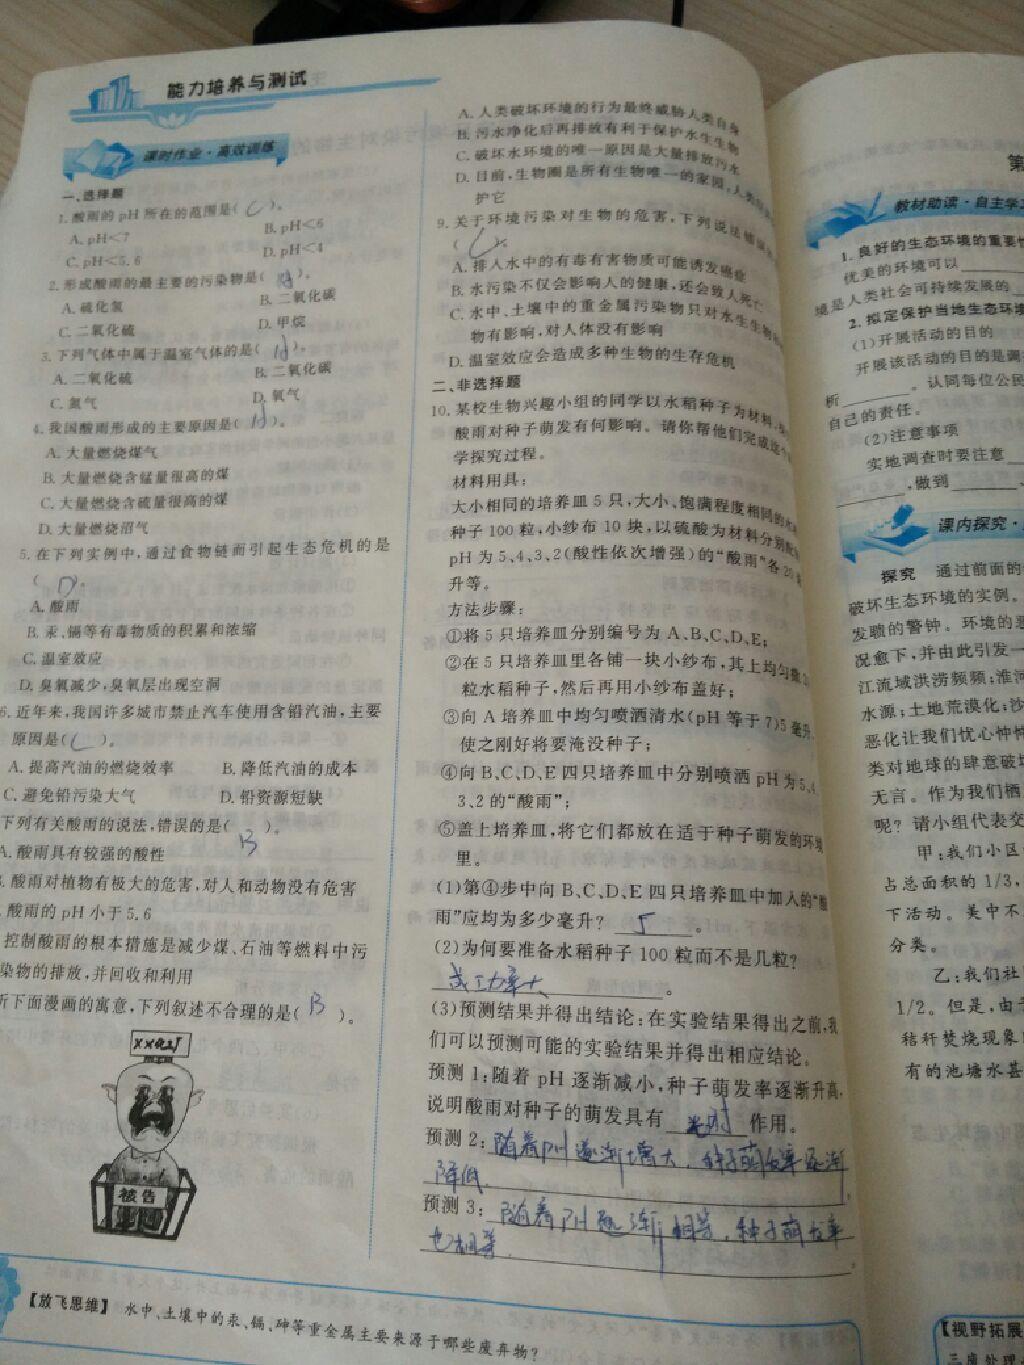 能力培养与测试
课时作业·高效训练
一、选择题
1.酸雨的pH所在的范围是( C )。
A.pH<7
B.pH<6
C.pH<5.6
D.pH<4
2.形成酸雨的最主要的污染物是( )。
A.硫化氢
B.二氧化碳
C.二氧化硫
D.甲烷
3.下列气体中属于温室气体的是( )。
A.二氧化硫
B.二氧化碳
C.氮气
D.氧气
4.我国酸雨形成的主要原因是( )。
A.大量燃烧煤气
B.大量燃烧含锰量很高的煤
C.大量燃烧含硫量很高的煤
D.大量燃烧沼气
5.在下列实例中,通过食物链而引起生态危机的是
( D )。
A.酸雨
B.汞、镉等有毒物质的积累和浓缩
C.温室效应
D.臭氧减少,臭氧层出现空洞
6.近年来,我国许多城市禁止汽车使用含铅汽油,主要
原因是( C )。
A.提高汽油的燃烧效率
B.降低汽油的成本
C.避免铅污染大气
D.铅资源短缺
下列有关酸雨的说法,错误的是( B )。
A.酸雨具有较强的酸性
.酸雨对植物有极大的危害,对人和动物没有危害
酸雨的pH小于5.6
控制酸雨的根本措施是减少煤、石油等燃料中污
染物的排放,并回收和利用
析下面漫画的寓意,下列叙述不合理的是( B )。
××化工厂
被告
A.人类破坏环境的行为最终威胁人类自身
B.污水净化后再排放有利于保护水生生物
C.破坏水环境的唯一原因是大量排放污水
D.目前,生物圈是所有生物唯一的家园,人类
护它
9.关于环境污染对生物的危害,下列说法错误
( C )。
A.排入水中的有毒有害物质可能诱发癌症
B.水污染不仅会影响人的健康,还会致人死亡
C.水中、土壤中的重金属污染物只对水生生物
物有影响,对人体没有影响
D.温室效应会造成多种生物的生存危机
二、非选择题
10.某校生物兴趣小组的同学以水稻种子为材料,
酸雨对种子萌发有何影响。请你帮他们完成这个
学探究过程。
材料用具:
大小相同的培养皿5只,大小、饱满程度相同的
种子100粒,小纱布10块,以硫酸为材料分别
pH为5、4、3、2(酸性依次增强)的“酸雨”各20
升等。
方法步骤:
①将5只培养皿分别编号为A、B、C、D、E;
②在5只培养皿里各铺一块小纱布,其上均匀
粒水稻种子,然后再用小纱布盖好;
③向A培养皿中均匀喷洒清水(pH等于7)5毫升,
使之刚好将要淹没种子;
④向B、C、D、E四只培养皿中分别喷洒pH为5、4、
3、2的“酸雨”;
⑤盖上培养皿,将它们都放在适于种子萌发的环境
里。
(1)第④步中向B、C、D、E四只培养皿中加入的“酸
雨”应均为多少毫升? 5 。
(2)为何要准备水稻种子100粒而不是几粒?
成功率大 。
(3)预测结果并得出结论:在实验结果得出之前,我
们可以预测可能的实验结果并得出相应结论。
预测1:随着pH逐渐减小,种子萌发率逐渐升高,
说明酸雨对种子的萌发具有 作用。
预测2:随着PH逐渐增大,种子萌发率逐渐
降低.
预测3:随着PH 渐 相等,种子萌发率
也相等.
【放飞思维】 水中、土壤中的汞、镉、砷等重金属主要来源于哪些废弃物?
第
教材助读·自主学
1.良好的生态环境的重要性
优美的环境可以
境是人类社会可持续发展的
2.拟定保护当地生态环境
(1)开展活动的目的
开展该活动的目的是调
析 。认同每位公民
自己的责任。
(2)注意事项
实地调查时要注意
,做到
课内探究·
探究 通过前面的
破坏生态环境的实例。
发聩的警钟。环境的恶
况愈下,并由此引发一
江流域洪涝频频;淮河
水源;土地荒漠化;沙
恶化让我们忧心忡忡
类对地球的肆意破坏
无言。作为我们栖
呢?请小组代表交
甲:我们小区
占总面积的1/3,
下活动。美中不
分类。
乙:我们社
1/2。但是,由于
秸秆焚烧现象
有的池塘水甚
【视野拓展